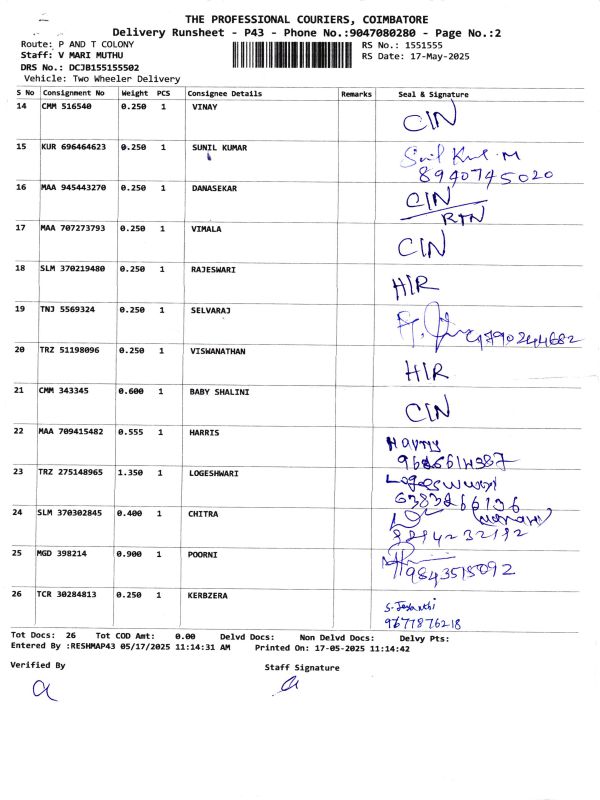 THE PROFESSIONAL COURIERS, COIMBATORE
Delivery Runsheet - P43 - Phone No.:9047080280 - Page No.:2
Route: P AND T COLONY RS No.: 1551555
Staff: V MARI MUTHU RS Date: 17-May-2025
DRS No.: DCJB155155502
Vehicle: Two Wheeler Delivery
S No Consignment No Weight PCS Consignee Details Remarks Seal & Signature
14 CMM 516540 0.250 1 VINAY CIN
15 KUR 696464623 0.250 1 SUNIL KUMAR
8940745020
16 MAA 945443270 0.250 1 DANASEKAR CIN
RTN
17 MAA 707273793 0.250 1 VIMALA CIN
18 SLM 370219480 0.250 1 RAJESWARI HIR
19 TNJ 5569324 0.250 1 SELVARAJ
20 TRZ 51198096 0.250 1 VISWANATHAN HIR
21 CMM 343345 0.600 1 BABY SHALINI CIN
22 MAA 709415482 0.555 1 HARRIS
23 TRZ 275148965 1.350 1 LOGESHWARI
6383266136
24 SLM 370302845 0.400 1 CHITRA
25 MGD 398214 0.900 1 POORNI
9843515092
26 TCR 30284813 0.250 1 KERBZERA
9677876218
Tot Docs: 26 Tot COD Amt: 0.00 Delvd Docs: Non Delvd Docs: Delvy Pts:
Entered By :RESHMAP43 05/17/2025 11:14:31 AM Printed On: 17-05-2025 11:14:42
Verified By Staff Signature